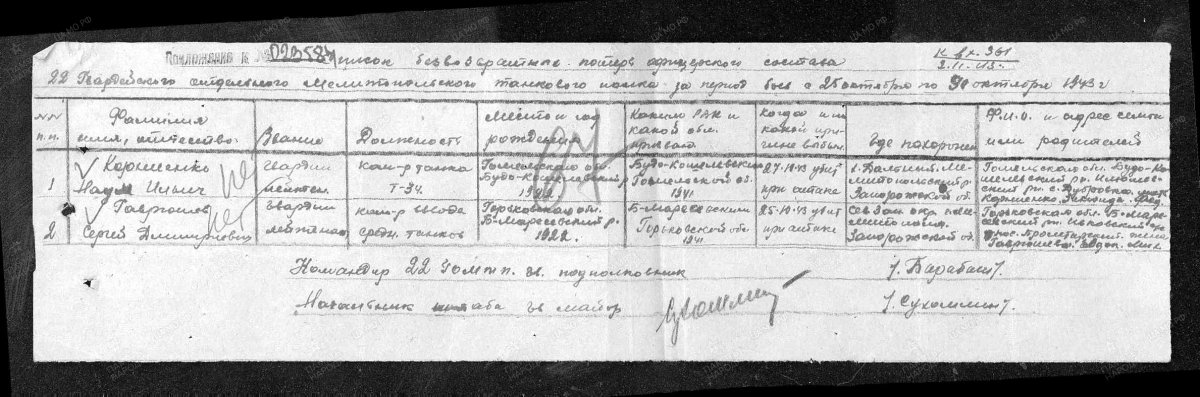 Приложение к № 02358у
К вх. 361
2.11.43г.
Список безвозвратных потерь офицерского состава
22 Гвардейского отдельного Мелитопольского танкового полка за период боев с 25 октября по 30 октября 1943 г
№№ п.п.
Фамилия имя, отчество.
Звание
Должность
Место и год рождения
Каким РВК и какой обл. призван
Когда и по какой причине выбыл.
Где похоронен
Ф.И.О. и адрес семьи или родителей
1
Корниенко Наум Ильич
Гвардии лейтен.
Ком-р танка Т-34.
Гомельская об. Будо-Кошелевский р 1922
Будо-Кошелевским Гомельской об. 1941
27.10.43 убит при атаке
Мелитопольский р. Запорожской об.
Гомельская обл. Будо-Кошелевский рн. с. Дубровка
2
Гаврюшев Сергей Дмитриевич
Гвардии лейтенант
ком-р взвода средн. танков
Горьковская обл. Б-Маресевский р. 1922.
Б-Маресевским Горьковской обл 1941
25-10.43 убит при атаке
Сев Зап окр. г. Мелитополя. Запорожской об.
Горьковская обл. Б-Маресевский жена Гаврюшева
Командир 22 ГОМТП. гв. подполковник
/. Барабаш /.
Начальник штаба гв майор
Сухомлин
/. Сухомлин /.